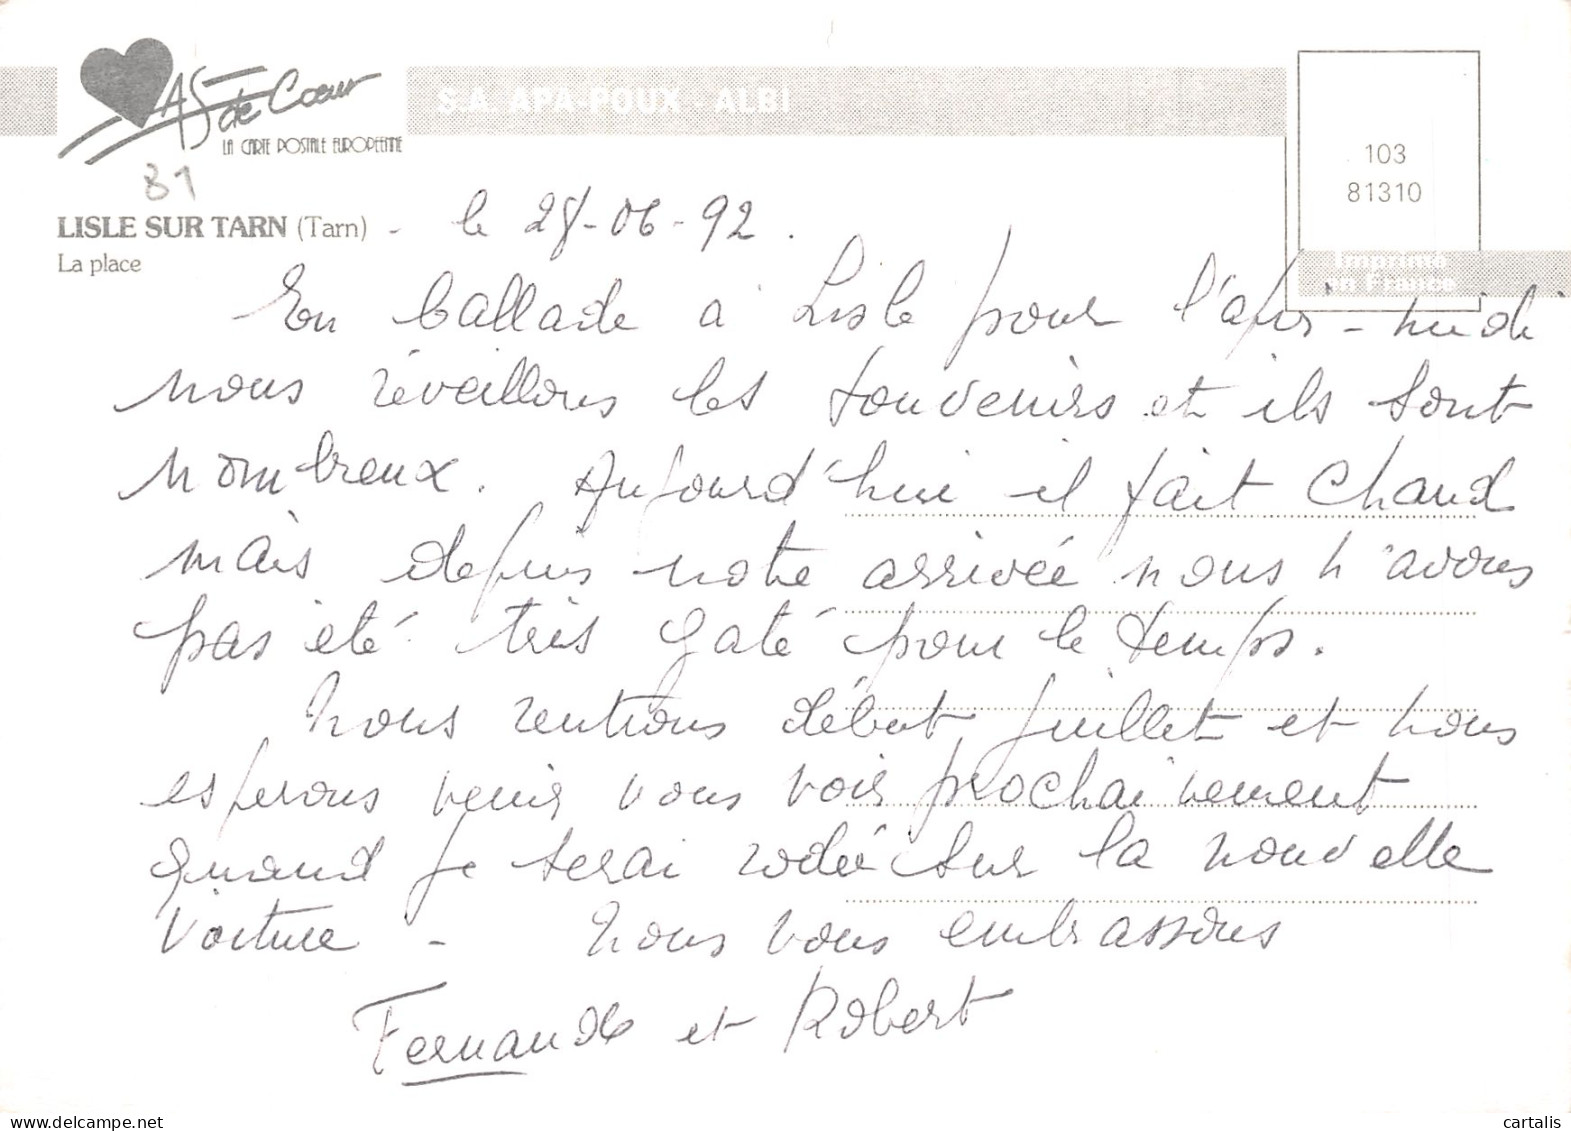 AS de Cœur
LA CARTE POSTALE EUROPEENNE
S.A. APA-POUX - ALBI
103
81310
Imprimé
en France
81
LISLE SUR TARN (Tarn) - le 28-06-92.
La place
En ballade à Lisle pour l'après-midi
nous réveillons les souvenirs et ils sont
nombreux. Aujourd'hui il fait chaud
mais depuis notre arrivée nous n'avons
pas été très gaté pour le temps.
Nous rentrons début juillet et nous
esperons venir vous voir prochainement
quand je serai rodée sur la nouvelle
voiture - Nous vous embrassons
Fernande et Robert
cartalis